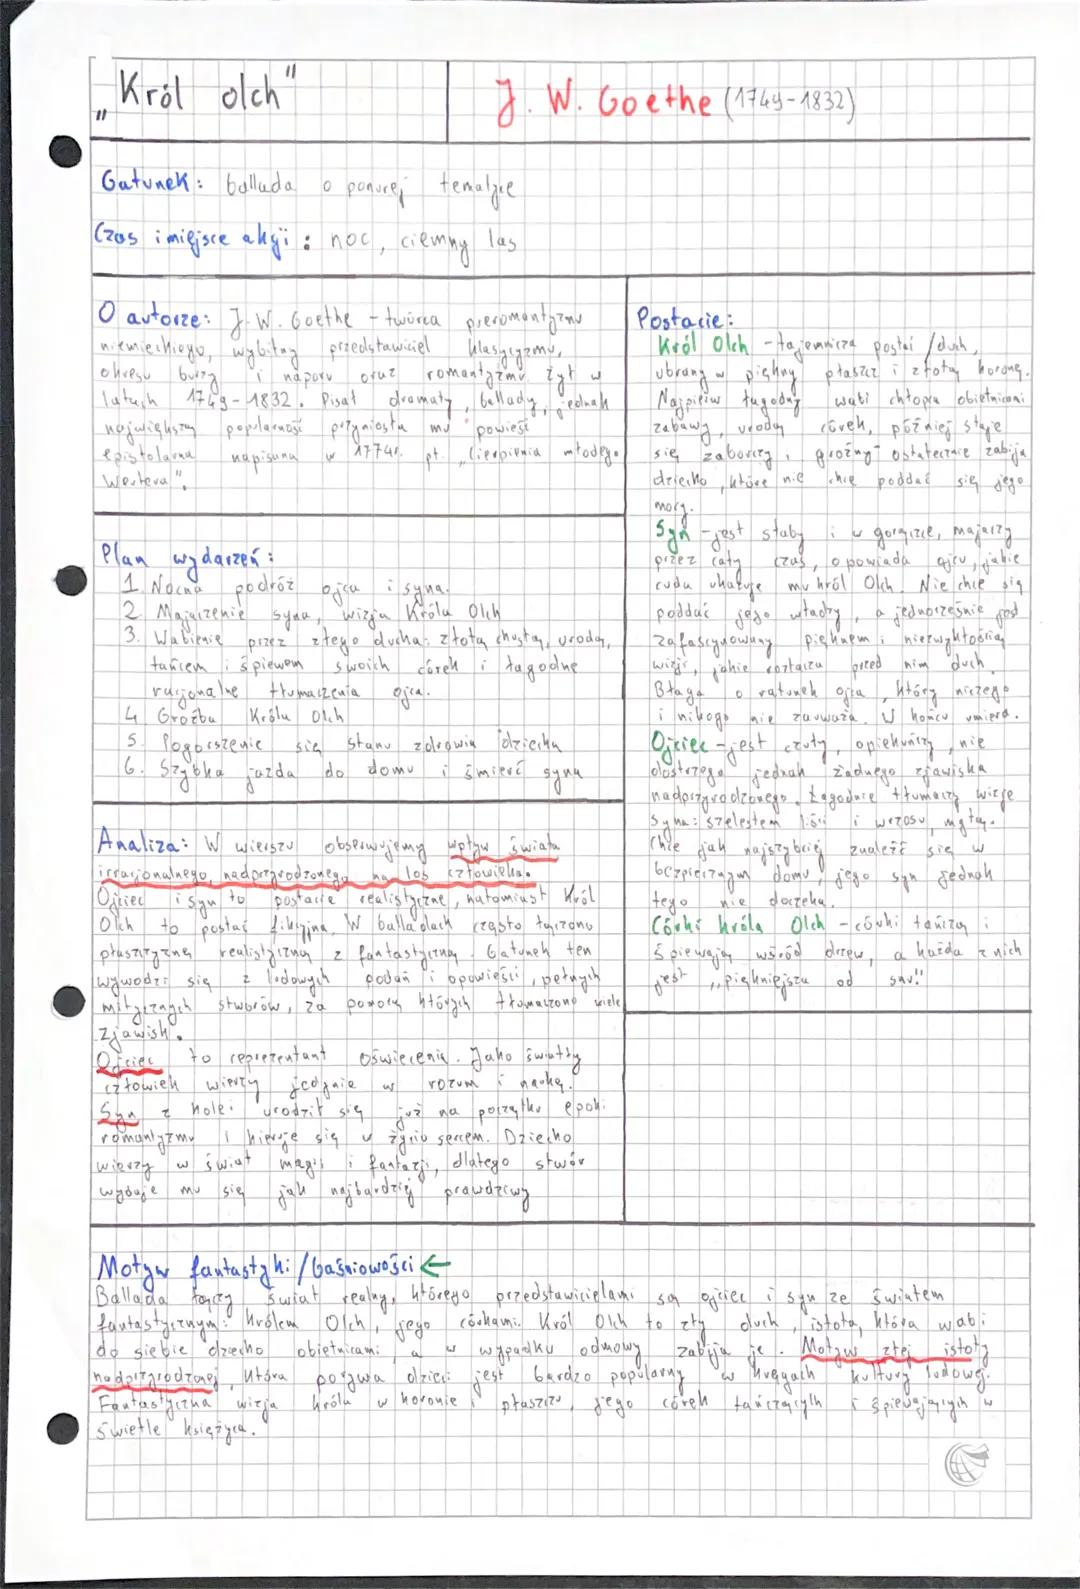 „Król olch"
J. W. Goethe (1749-1832)
Gatunek: ballada o ponurej tematyce
Czas i miejsce akcji: noc, ciemny las
O autorze: J. W. Goethe - twórca preromantyzmu
niemieckiego, wybitny przedstawiciel klasycyzmu,
okresu burzy i naporu oraz romantyzmu żył w
latach 1749-1832. Pisał dramaty, ballady, jednak
największą popularność przyniosła mu powieść
epistolarna napisana w 1774r. pt. „Cierpienia młodego
Wertera".
Plan wydarzeń:
1. Nocna podróż ojca i syna.
2. Majaczenie syna, wizja Króla Olch
3. Wabienie przez złego ducha: złotą chustą, urodą,
tańcem i śpiewem swoich córek i łagodne
racjonalne tłumaczenia ojca.
4. Groźba Króla Olch
5. Pogorszenie się stanu zdrowia dziecka
6. Szybka jazda do domu i śmierć syna
Analiza: W wierszu obserwujemy wpływ świata
irracjonalnego, nadprzyrodzonego na los człowieka.
Ojciec i syn to postacie realistyczne, natomiast Król
Olch to postać fikcyjna. W balladach często łączono
płaszczyznę realistyczną z fantastyczną. Gatunek ten
wywodzi się z ludowych podań i opowieści, pełnych
mitycznych stworów, za pomocą których tłumaczono wiele
zjawisk.
Ojciec to reprezentant oświecenia. Jako światły
człowiek wierzy jedynie w rozum i naukę.
Syn z kolei urodził się już na początku epoki
romantyzmu i kieruje się w życiu sercem. Dziecko
wierzy w świat magii i fantazji, dlatego stwór
wydaje mu się jak najbardziej prawdziwy
Postacie:
Król Olch - tajemnicza postać/duch,
ubrany w piękny płaszcz i złotą koronę.
Najpierw łagodny wabi chłopca obietnicami
zabawy, urodą córek, później staje
się zaborczy, groźny ostatecznie zabija
dziecko, które nie chce poddać się jego
mocy.
Syn - jest słaby i w gorączce, majaczy
przez cały czas, opowiada ojcu, jakie
cuda ukazuje mu król Olch. Nie chce się
poddać jego władzy, a jednocześnie jest
zafascynowany pięknem i niezwykłością
wizji, jakie roztacza przed nim duch
Błaga o ratunek ojca, który niczego
i nikogo nie zauważa. W końcu umiera.
Ojciec - jest czuły, opiekuńczy, nie
dostrzega jednak żadnego zjawiska
nadprzyrodzonego. Łagodnie tłumaczy wizje
syna: szelestem liści i wrzosu, mgłą.
Chce jak najszybciej znaleźć się w
bezpiecznym domu, jego syn jednak
tego nie doczeka.
Córki króla Olch - córki tańczą i
śpiewają wśród drzew, a każda z nich
jest „piękniejsza od snu."
Motyw fantastyki/baśniowości ←
Ballada łączy świat realny, którego przedstawicielami są ojciec i syn ze światem
fantastycznym: królem Olch, jego córkami. Król Olch to zły duch, istota, która wabi
do siebie dziecko obietnicami, a w wypadku odmowy zabija je. Motyw złej istoty
nadprzyrodzonej, która porywa dzieci jest bardzo popularny w kręgach kultury ludowej.
Fantastyczna wizja króla w koronie i płaszczu, jego córek tańczących i śpiewających w
świetle księżyca.